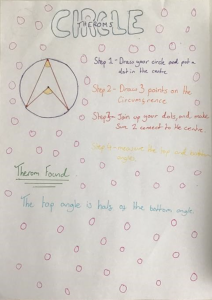 CIRCLE
THEROMS
Step 1 - Draw your circle and put a
dot in the centre
Step 2 - Draw 3 points on the
Circumference
Step 3 - Join up your dots, and make
Sure 2 connect to the centre.
Therom Found
The top angle is half of the bottom angle